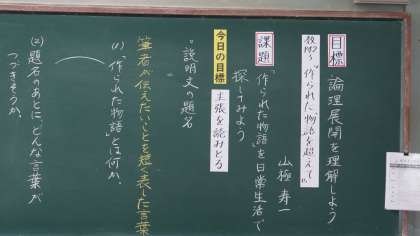 目標 論理展開を理解しよう
教P42～ “作られた物語を超えて”
山極 寿一
課題 “作られた物語”を日常生活で
探してみよう
今日の目標 主張を読みとる
“説明文の題名
筆者が伝えたいことを短く表した言葉
(1) 作られた物語とは何か。
(2) 題名のあとに、どんな言葉が
つづきそうか。